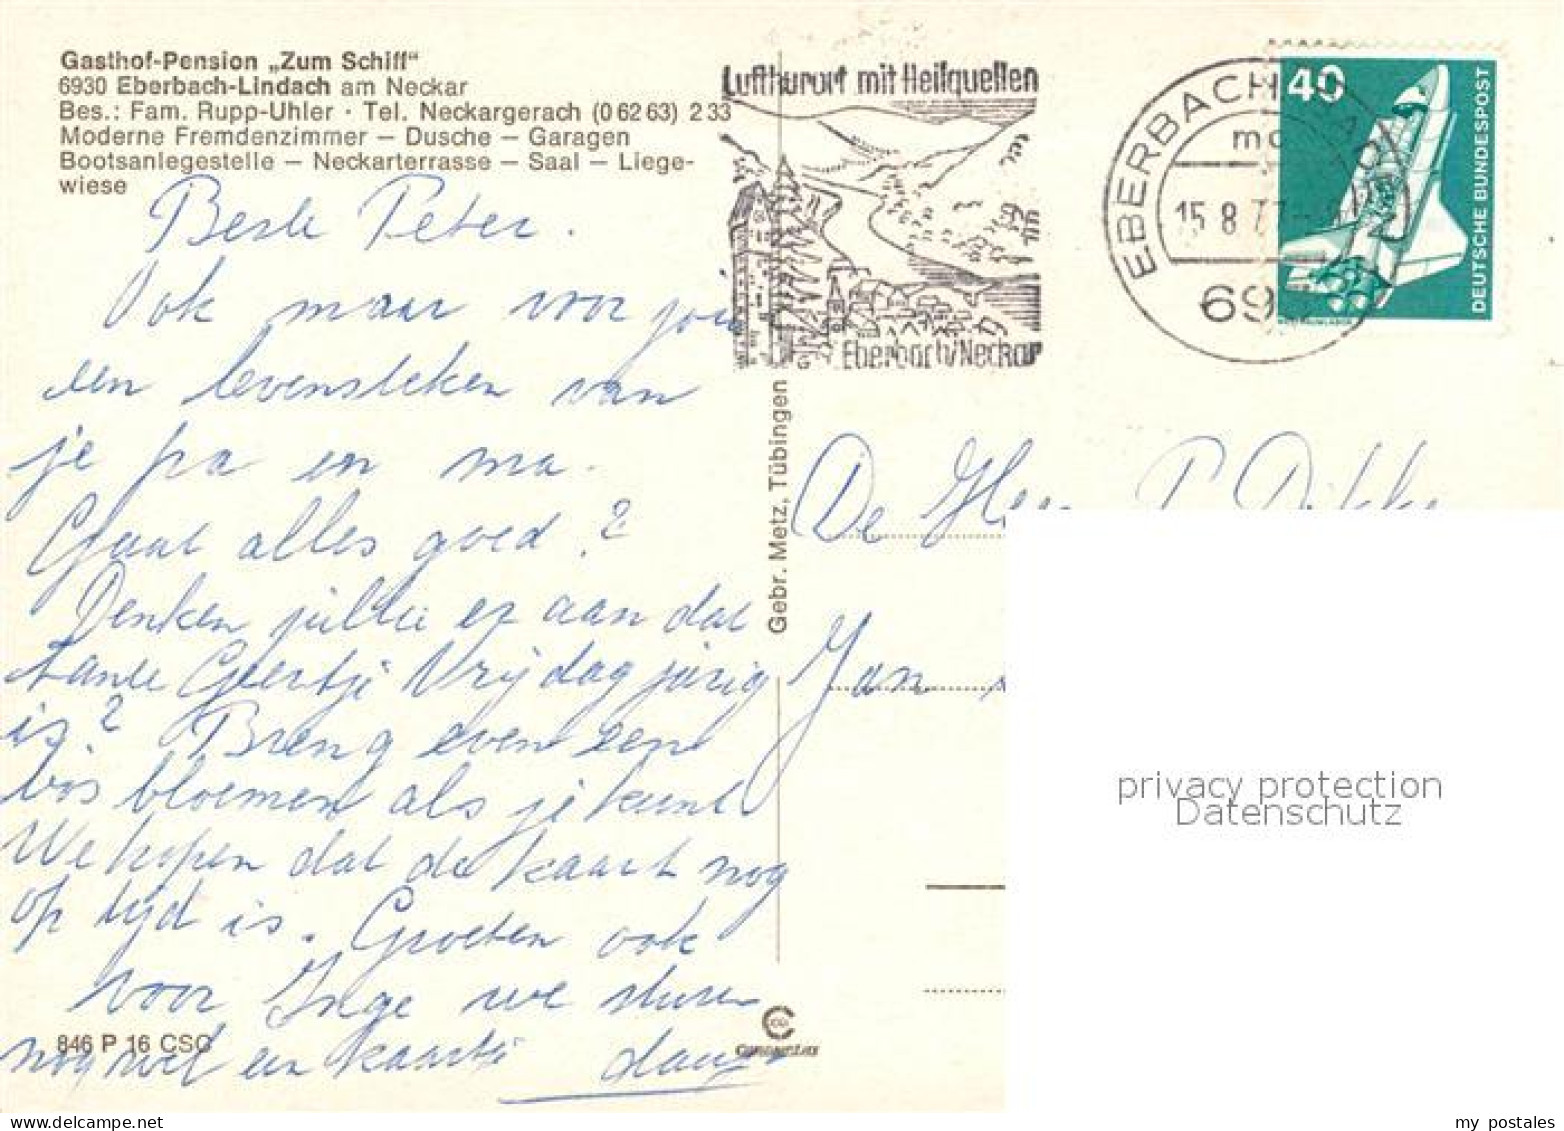 Gasthof-Pension „Zum Schiff“
6930 Eberbach-Lindach am Neckar
Bes.: Fam. Rupp-Uhler · Tel. Neckargerach (0 62 63) 2 33
Moderne Fremdenzimmer — Dusche — Garagen
Bootsanlegestelle — Neckarterrasse — Saal — Liege-
wiese
Beste Peter.
Ook maar voor jou
een levensteken van
je pa en ma.
Gaat alles goed?
Denken jullie er aan dat
tante Geertje Vrijdag jarig
is? Breng even een
bos bloemen als je kunt
We hopen dat de kaart nog
op tijd is. Groeten ook
voor Inge we sturen
nog wel een kaartje
846 P 16 CSC
Gebr. Metz, Tübingen
Luftkurort mit Heilquellen
Eberbach/Neckar
EBERBACH
15.8.77
69
40
DEUTSCHE BUNDESPOST
De Heer P.
Jan
privacy protection
Datenschutz
my postales